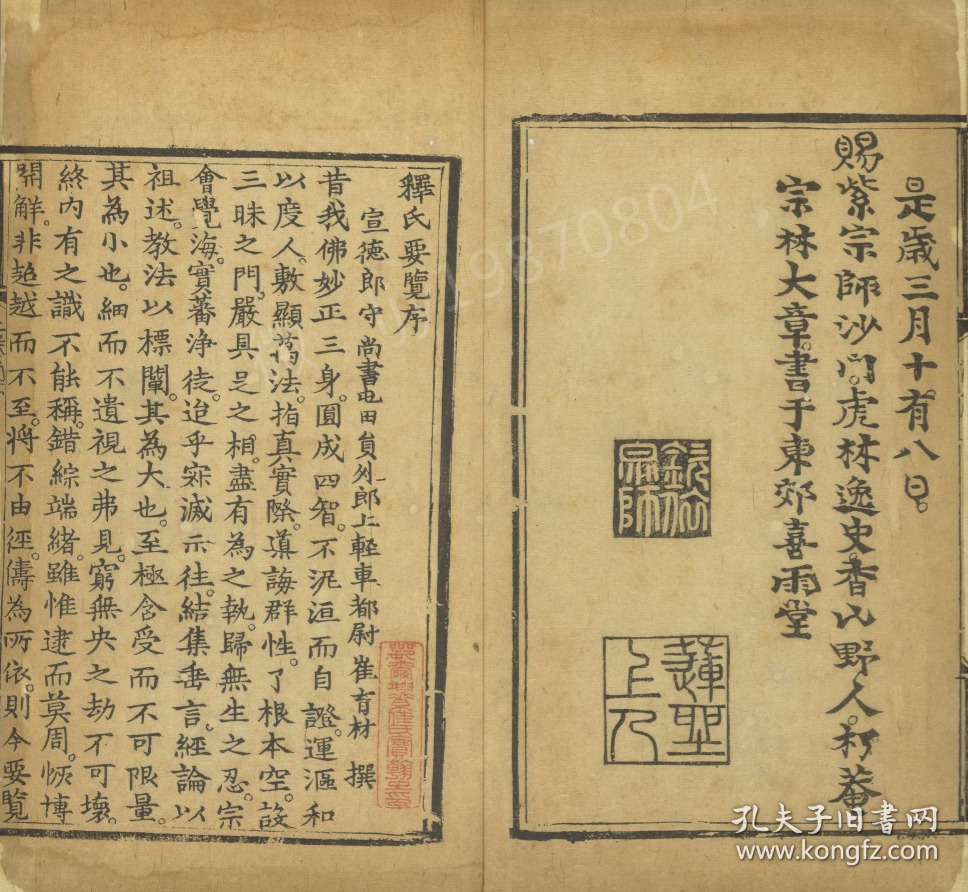 是歲三月十有八日。
賜紫宗師沙門。虎林逸史。香山野人。朽菴
宗林大章書于東郊喜雨堂
蓮壁
上人
釋氏要覽序
宣德郎守尚書屯田員外郎上輕車都尉崔育材撰
昔我佛妙正三身。圓成四智。不泥洹而自證。運漚和
以度人。敷顯萬法。指真實際。導誨群性。了根本空。設
三昧之門。嚴具足之相。盡有為之執。歸無生之忍。宗
會覺海。實蕃淨徒。迨乎寂滅示往。結集垂言。經論以
祖述。教法以標闡。其為大也。至極含受而不可限量。
其為小也。細而不遺視之弗見。窮無央之劫不可壞。
終內有之識不能稱。錯綜端緒。雖惟逮而莫周。恢博
開解。非趍越而不至。將不由徑。儔為所依。則今要覽
19870804
孔夫子旧書网
www.kongfz.com